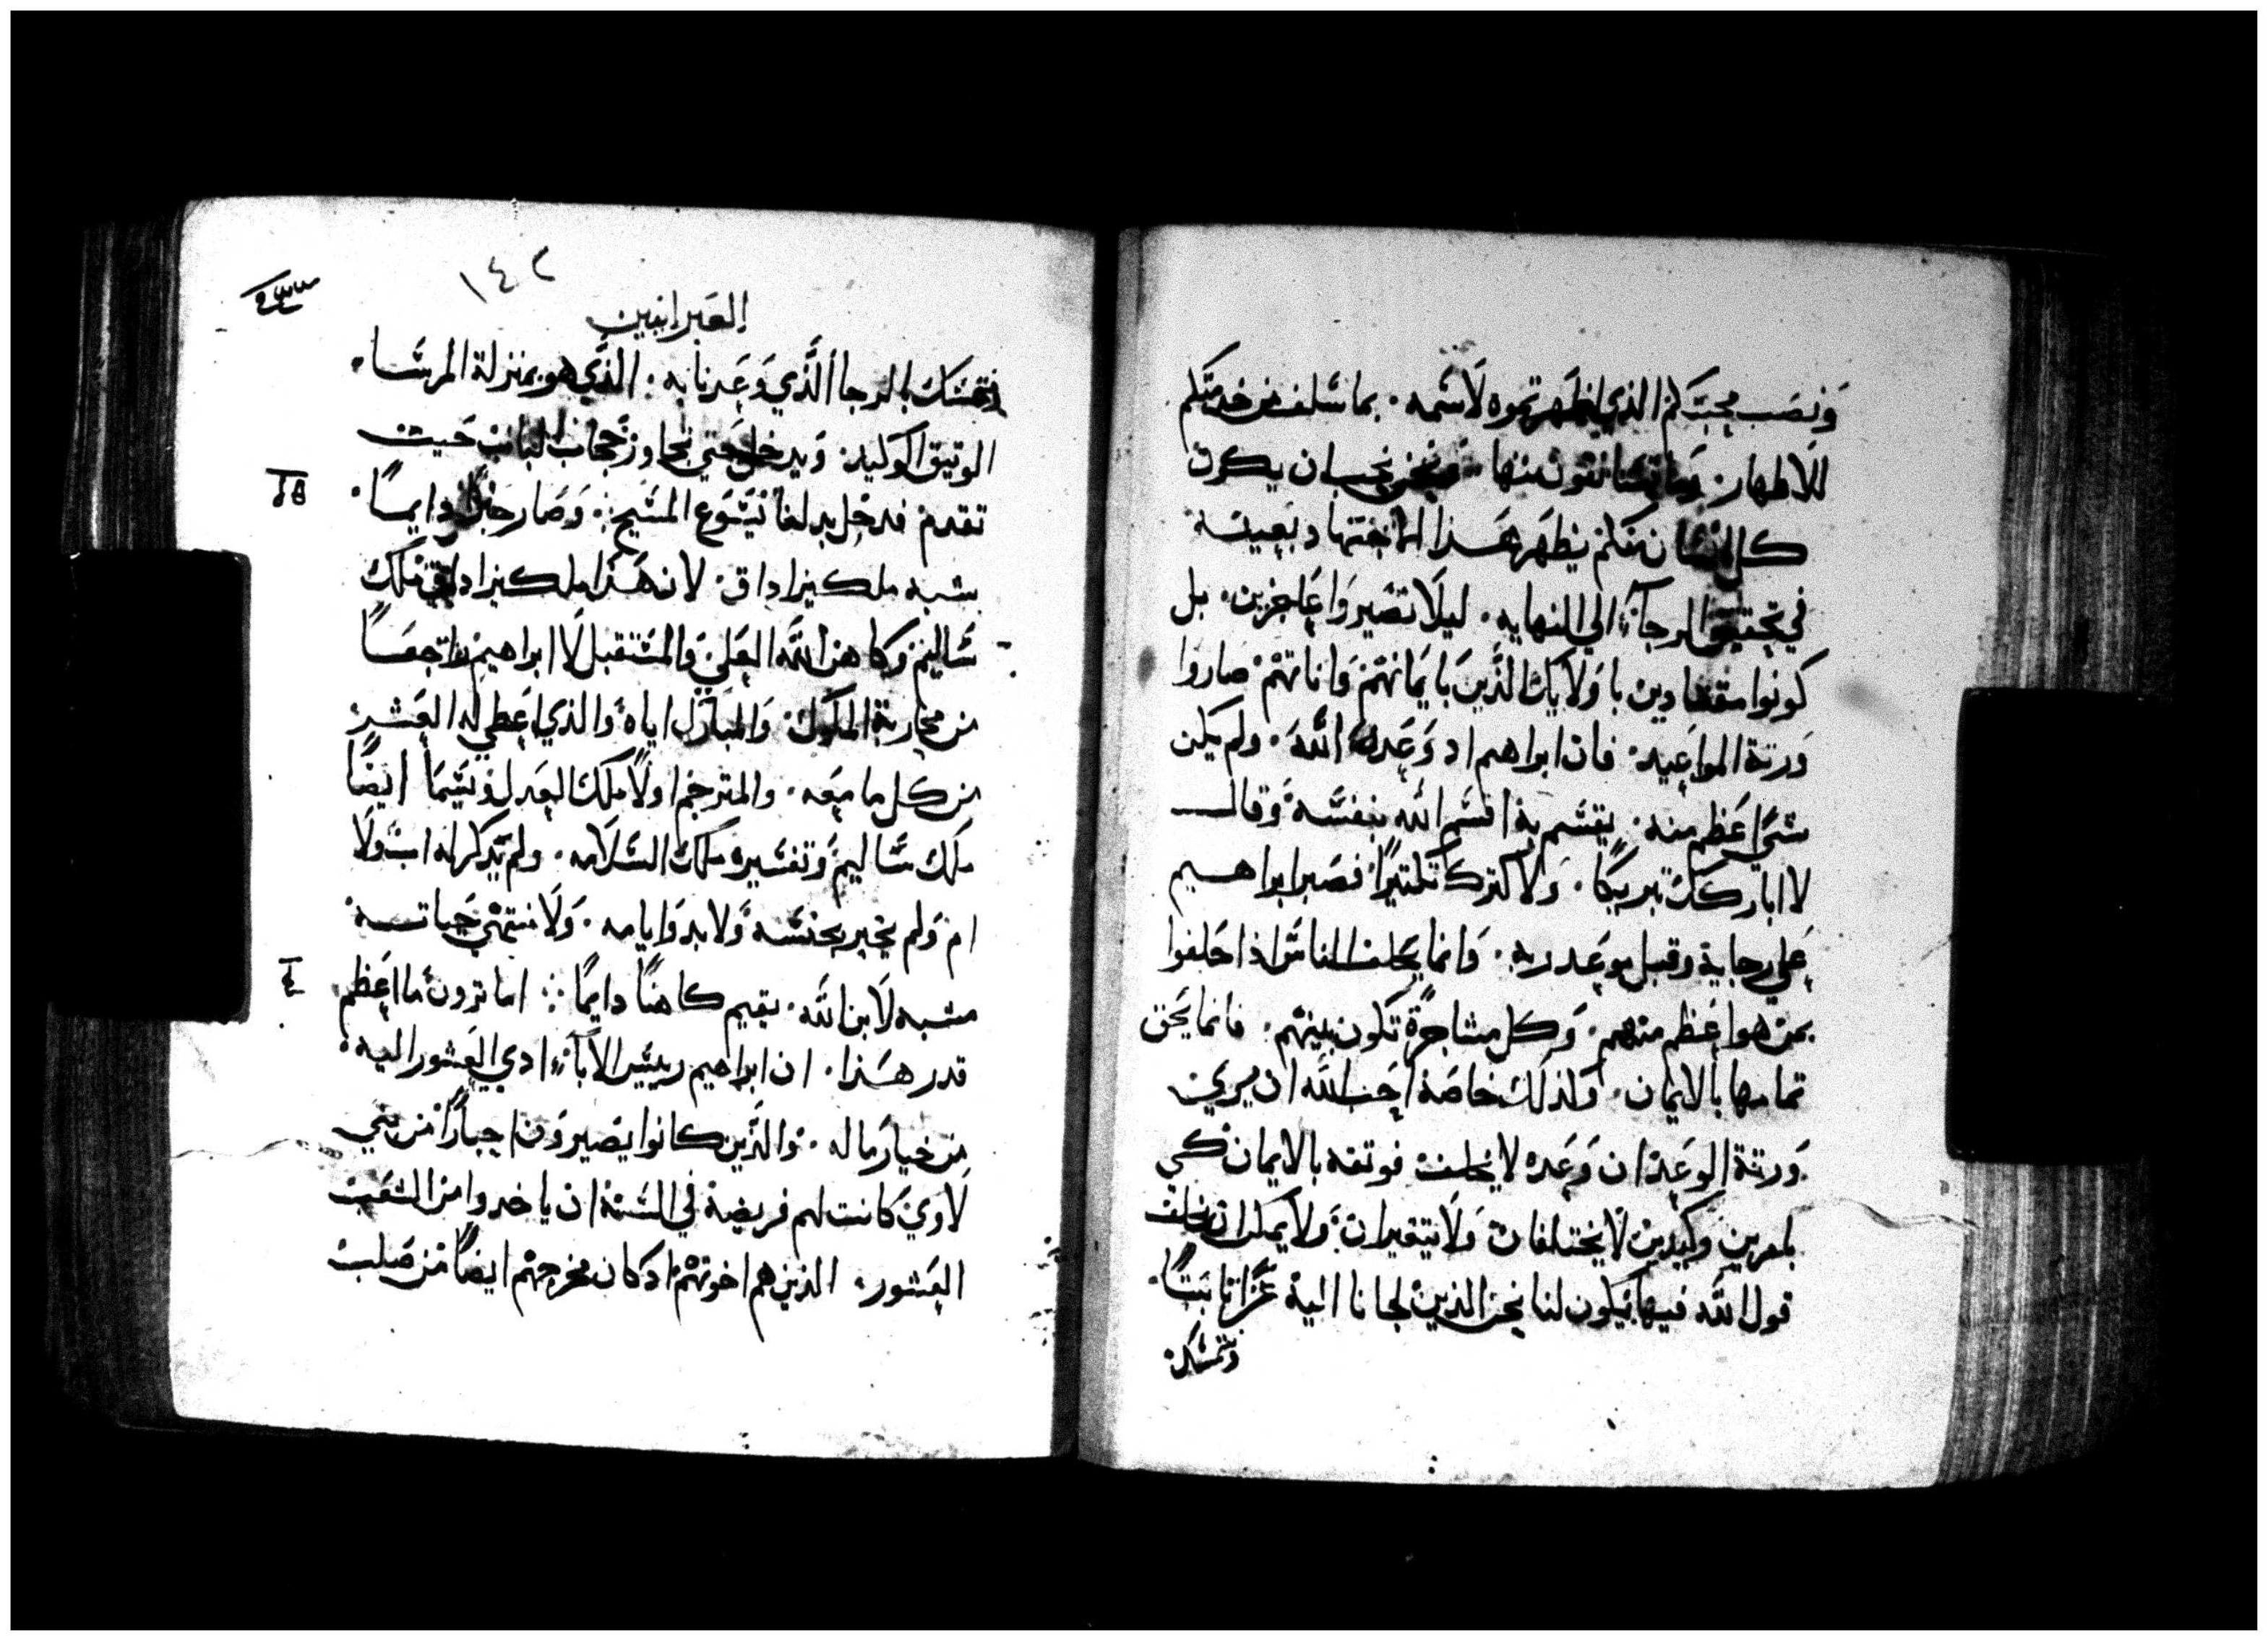 وَنصَب محبَتكم الذي اظهرتموه لاَسَمه. بما سَلف من خدمتكم
للاطهار. وما تستانفون منها. ونحن نحب ان يكون
كل انسَان منكم يظهر هَذا الاجتهاد بعينه
في تحقيق الرجآء الي النهايه. ليلا تصَيروا عَاجزين. بل
كونوا مقتادين باولايك الذين بايمانهم واناتهم صاروا
وَرثة المواعيد. فان ابراهيم اد وَعَده الله. ولم يكن
شي اعَظم منه. يقسَم به اقسَم الله بنفسَه وقال
لا اباركك تبريكًا. وَلاكترك تكتيرًا فصَبر ابراهيم
عَلي رجايه وقبل موعد ربه. وَانما يحَلف الناسَ اذا حَلفوا
بمن هو اعَظم منهم. وَكل مشاجرة تكون بينهم. فانما يحَق
تمامها بالايمان. ولذلك خاصَة احَب الله ان يري
وَرثة الوعَد ان وَعَده لا يخلف فوتقه بالايمان كي
بامرين وكيدين لا يختلفان وَلا يتغيران وَلا يمكن ان يخلف
قول الله فيها يكون لنا نحن الذين لجانا اليه عَزا تابتًا.
ونتمسَك
١٤٢
العَبرانيين
ونتمسَك بالرجا الذَّي وَعَدنا به. الذي هو بمنزلة المرسَا.
الوتيق الوكيد. وَيدخل حَتي يجاوز حجاب الباب حَيت
تقدم فدخل بدلنا يسَوع المسَيح. وَصَار حبرًا دايمًا.
بشبه ملكيزاداق. لان هَذا ملكيزاداق ملك
سَاليم وكاهن الله العَلي وَالمسَتقبل لابراهيم راجعًا
من محاربة الملوك. وَالمبارك اياه والذي اعَطي له العَشر
من كل ما معَه. والمترجم اولاً ملك العَدل ويسَما ايضًا
ملك سَاليم وَتفسَيره ملك السَلامه. ولم يذكر له اب ولا
ام وَلم يخبر بجنسَه وَلا بدو ايامه. وَلا منتهي حَياته
مشبه لابن الله. يقيم كاهنًا دايمًا ∴ اما ترون ما اعَظم
قدر هَذا. ان ابراهيم رييسَ الابآء ادي العَشور اليه.
من خيار ماله. والذَّين كانوا يصَيرون احبارًا من بني
لاوي كانت لهم فريضة في السَنة ان ياخدوا من الشعَب
العَشور. الذين هم اخوتهم اد كان مخرجهم ايضًا من صَلب